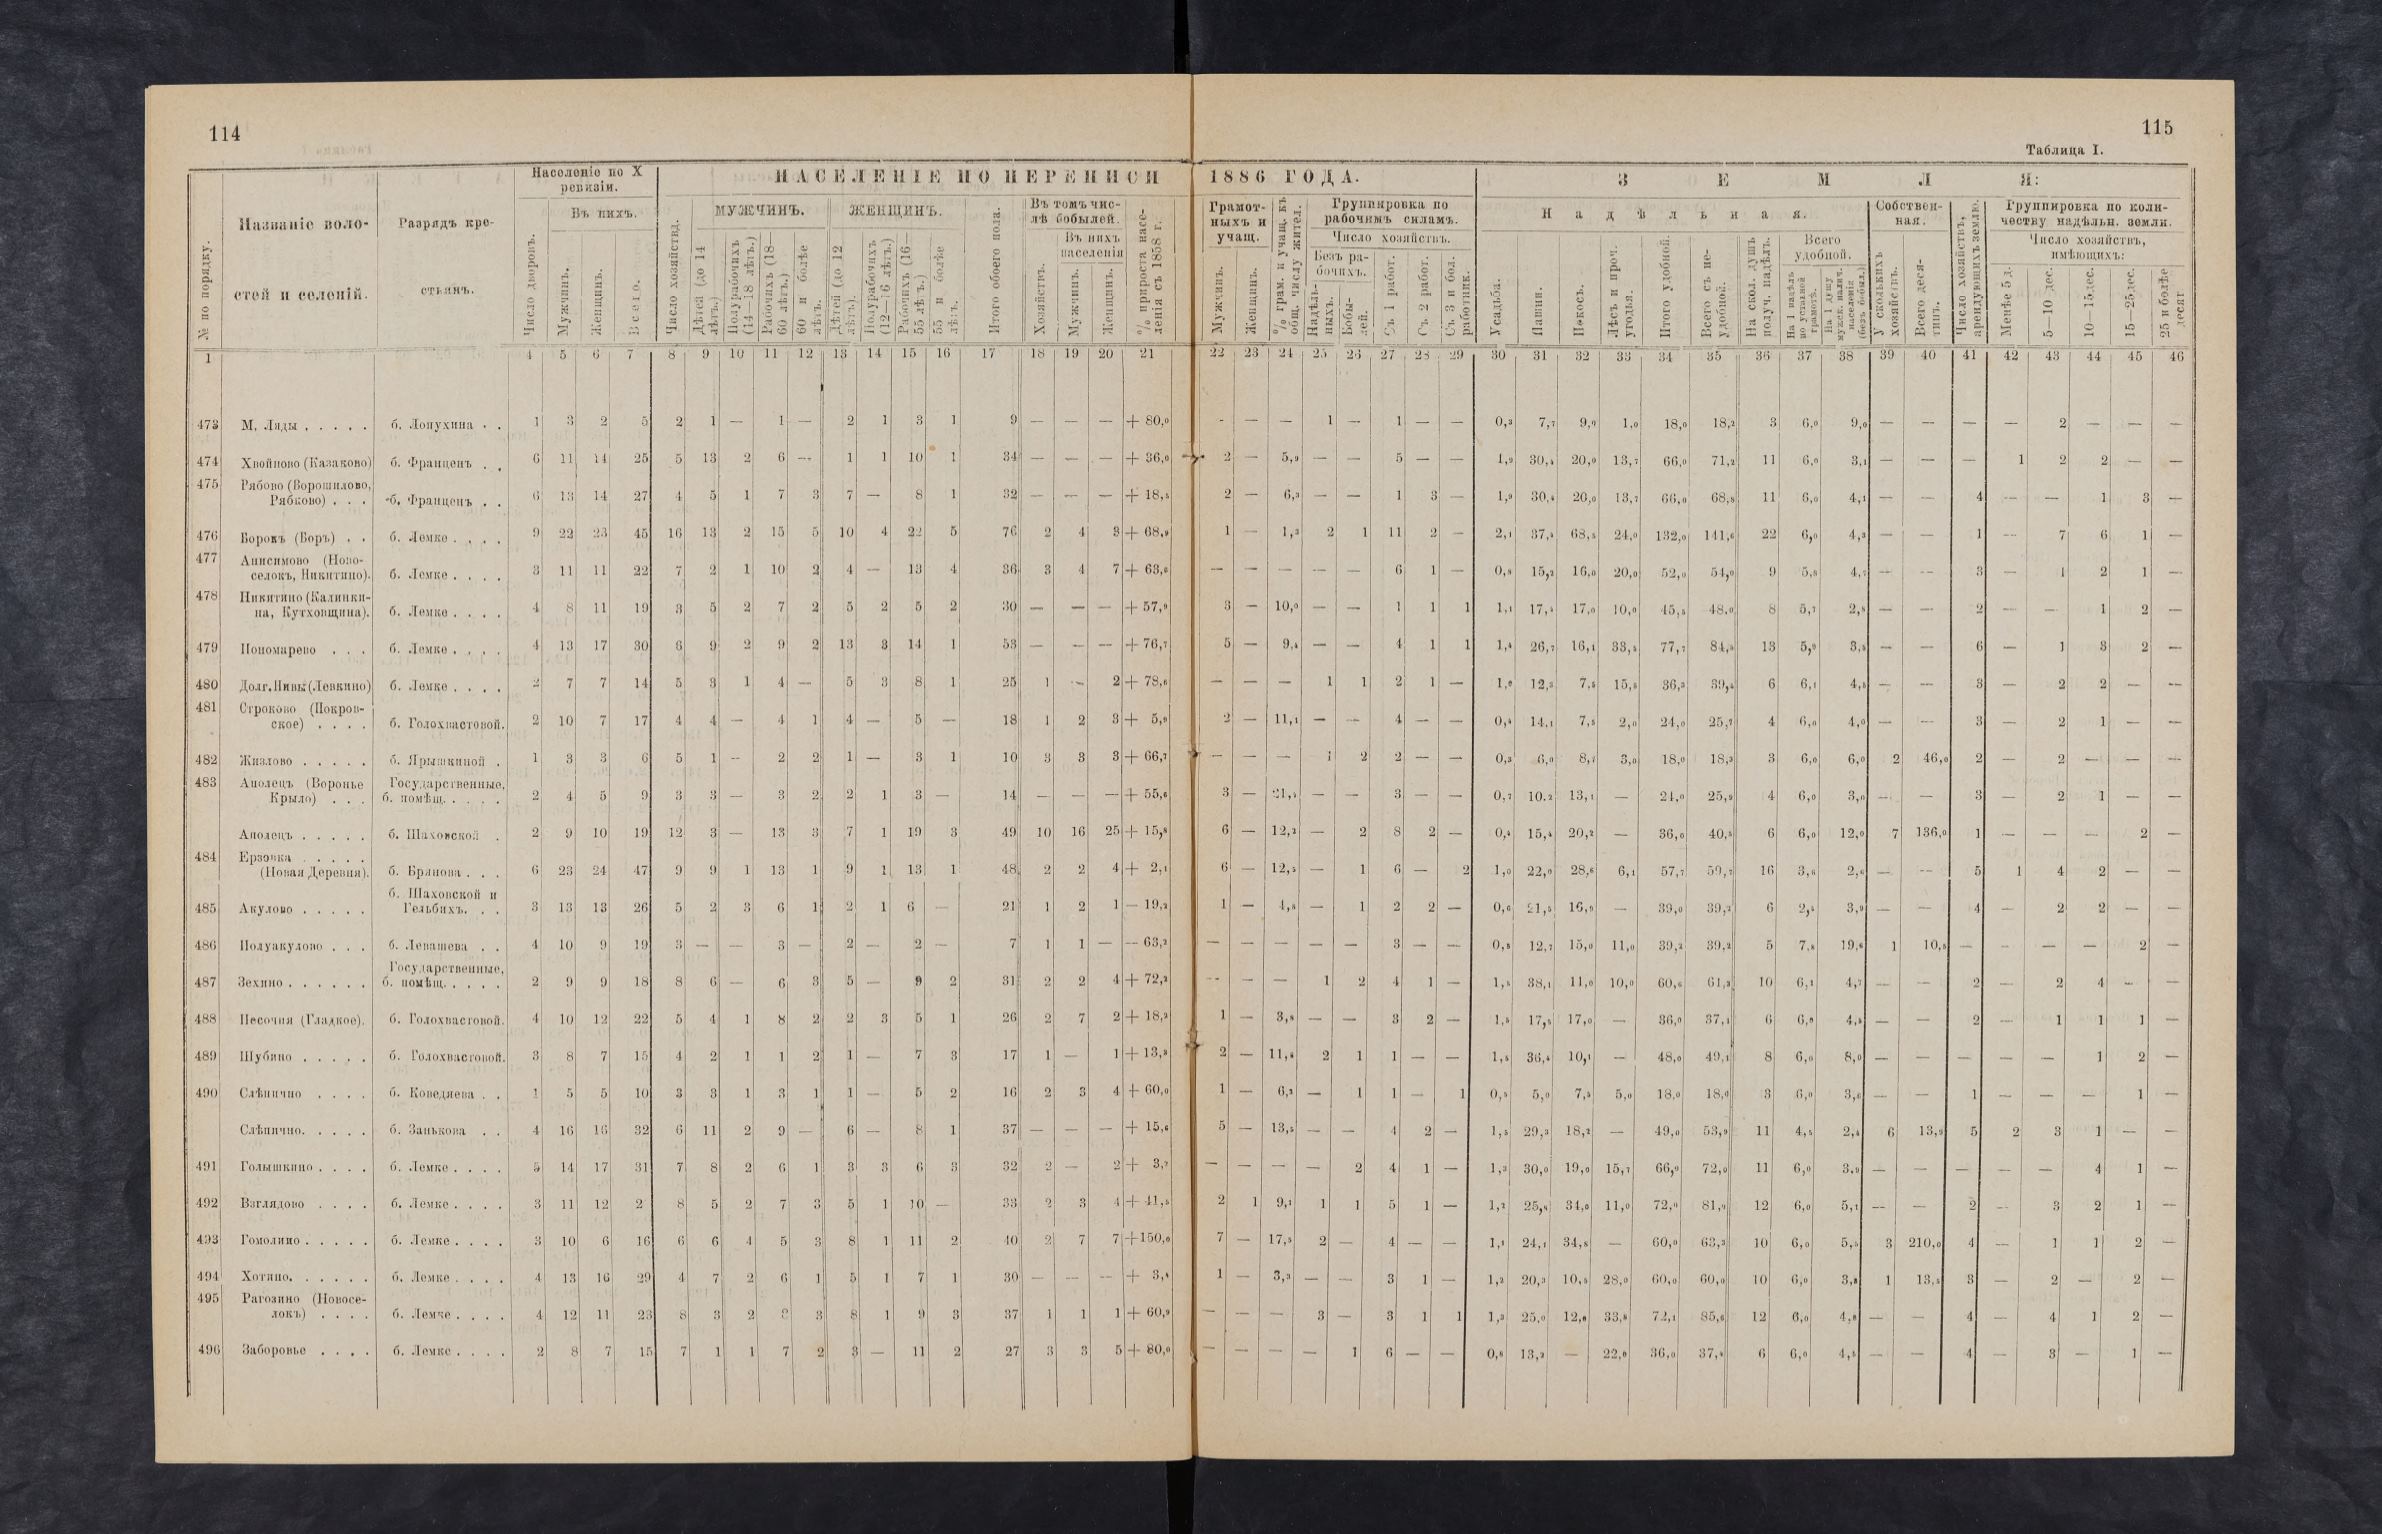 114
115
Таблица I.
№ по порядку.
Названіе волостей и селеній.
Разрядъ крестьянъ.
Населеніе по X ревизіи.
Число дворовъ.
Въ нихъ.
Мужчинъ.
Женщинъ.
Всего.
НАСЕЛЕНІЕ ПО ПЕРЕПИСИ 1886 ГОДА.
Число хозяйствъ.
МУЖЧИНЪ.
Дѣтей (до 14 лѣтъ.)
Полурабочихъ (14—18 лѣтъ.)
Рабочихъ (18—60 лѣтъ.)
60 и болѣе лѣтъ.
ЖЕНЩИНЪ.
Дѣтей (до 12 лѣтъ).
Полурабочихъ (12—16 лѣтъ.)
Рабочихъ (16—55 лѣтъ.)
55 и болѣе лѣтъ.
Итого обоего пола.
Въ томъ числѣ бобылей.
Хозяйствъ.
Въ нихъ населенія
Мужчинъ.
Женщинъ.
% прироста населенія съ 1858 г.
Грамотныхъ и учащ.
Мужчинъ.
Женщинъ.
% грам. и учащ. къ общ. числу жител.
Группировка по рабочимъ силамъ.
Число хозяйствъ.
Безъ рабочихъ.
Надѣльныхъ.
Бобылей.
Съ 1 работ.
Съ 2 работ.
Съ 3 и бол. работник.
ЗЕМЛЯ:
Надѣльная.
Усадьба.
Пашни.
Покосъ.
Лѣсъ и проч. угодья.
Итого удобной.
Всего съ неудобной.
На скол. душъ получ. надѣлъ.
Всего удобной.
На 1 надѣлъ по уставной грамотѣ.
На 1 душу мужск. налич. населенія (безъ бобыл.)
Собственная.
У сколькихъ хозяйствъ.
Всего десятинъ.
Число хозяйствъ, арендующихъ землю.
Группировка по количеству надѣльн. земли.
Число хозяйствъ, имѣющихъ:
Менѣе 5 д.
5—10 дес.
10—15 дес.
15—25 дес.
25 и болѣе десят
1 4 5 6 7 8 9 10 11 12 13 14 15 16 17 18 19 20 21 22 23 24 25 26 27 28 29 30 31 32 33 34 35 36 37 38 39 40 41 42 43 44 45 46
473 М. Ляды . . . . . б. Лопухина . . 1 3 2 5 2 1 — 1 — 2 1 3 1 9 — — — + 80,0 - — — 1 — 1 — — 0,3 7,7 9,0 1,0 18,0 18,2 3 6,0 9,0 — — — — 2 — — —
474 Хвойново (Казаково) б. Франценъ . . 6 11 14 25 5 13 2 6 — 1 1 10 1 34 — — — + 36,0 2 — 5,9 — — 5 — — 1,9 30,4 20,0 13,7 66,0 71,2 11 6,0 3,1 — — — 1 2 2 — —
475 Рябово (Ворошилово, Рябково) . . . б. Франценъ . . 6 13 14 27 4 5 1 7 3 7 — 8 1 32 — — — + 18,5 2 — 6,3 — — 1 3 — 1,9 30,4 20,0 13,7 66,0 68,8 11 6,0 4,1 — — 4 — — 1 3 —
476 Борокъ (Боръ) . . б. Лемке . . . . 9 22 23 45 16 13 2 15 5 10 4 22 5 76 2 4 3 + 68,9 1 — 1,3 2 1 11 2 — 2,1 37,4 68,5 24,0 132,0 141,6 22 6,0 4,3 — — 1 — 7 6 1 —
477 Анисимово (Новоселокъ, Никитино). б. Лемке . . . . 3 11 11 22 7 2 1 10 2 4 — 13 4 36 3 4 7 + 63,6 — — — — — 6 1 — 0,8 15,2 16,0 20,0 52,0 54,0 9 5,8 4,7 — — 3 — 4 2 1 —
478 Никитино (Калинкина, Кутховщина). б. Лемке . . . . 4 8 11 19 3 5 2 7 2 5 2 5 2 30 — — — + 57,9 3 — 10,0 — — 1 1 1 1,1 17,4 17,0 10,0 45,5 48,0 8 5,7 2,8 — — 2 — — 1 2 —
479 Пономарево . . . б. Лемке . . . . 4 13 17 30 6 9 2 9 2 13 3 14 1 53 — — — + 76,7 5 — 9,4 — — 4 1 1 1,4 26,7 16,1 33,5 77,7 84,5 13 5,9 3,5 — — 6 — 1 3 2 —
480 Долг. Нивы (Левкино) б. Лемке . . . . 2 7 7 14 5 3 1 4 — 5 3 8 1 25 1 — 2 + 78,6 — — — 1 1 2 1 — 1,0 12,3 7,5 15,5 36,3 39,4 6 6,1 4,5 — — 3 — 2 2 — —
481 Строково (Покровское) . . . . б. Голохвастовой. 2 10 7 17 4 4 — 4 1 4 — 5 — 18 1 2 3 + 5,9 2 — 11,1 — — 4 — — 0,4 14,1 7,5 2,0 24,0 25,7 4 6,0 4,0 — — 3 — 2 1 — —
482 Жизлово . . . . . б. Ярышкиной . 1 3 3 6 5 1 — 2 2 1 — 3 1 10 3 3 3 + 66,7 — — — 1 2 2 — — 0,3 6,0 8,7 3,0 18,0 18,3 3 6,0 6,0 2 46,0 2 — 2 — — —
483 Аполецъ (Воронье Крыло) . . . Государственные, б. помѣщ. . . . . 2 4 5 9 3 3 — 3 2 2 1 3 — 14 — — — + 55,6 3 — 21,4 — — 3 — — 0,7 10,2 13,1 — 24,0 25,9 4 6,0 3,0 — — 3 — 2 1 — —
Аполецъ . . . . . б. Шаховской . 2 9 10 19 12 3 — 13 3 7 1 19 3 49 10 16 25 + 15,8 6 — 12,2 — 2 8 2 — 0,4 15,4 20,2 — 36,0 40,5 6 6,0 12,0 7 136,0 1 — — — 2 —
484 Ерзовка . . . . . (Новая Деревня). б. Брянова . . . 6 23 24 47 9 9 1 13 1 9 1 13 1 48 2 2 4 + 2,1 6 — 12,5 — 1 6 — 2 1,0 22,0 28,6 6,1 57,7 59,7 16 3,6 2,6 — — 5 1 4 2 — —
485 Акулово . . . . . б. Шаховской и Гельбихъ. . . 3 13 13 26 5 2 3 6 1 2 1 6 — 21 1 2 1 — 19,2 1 — 4,8 — 1 2 2 — 0,6 21,5 16,9 — 39,0 39,2 6 2,4 3,9 — — 4 — 2 2 — —
486 Полуакулово . . . б. Левашева . . 4 10 9 19 3 — — 3 — 2 — 2 — 7 1 1 — — 63,2 — — — — — 3 — — 0,5 12,7 15,0 11,0 39,2 39,2 5 7,8 19,6 1 10,5 — — — — 2 —
487 Зехино . . . . . . Государственные, б. помѣщ. . . . . 2 9 9 18 8 6 — 6 3 5 — 9 2 31 2 2 4 + 72,2 — — — 1 2 4 1 — 1,5 38,1 11,0 10,0 60,6 61,3 10 6,1 4,7 — — 2 — 2 4 — —
488 Песочня (Гладкое). б. Голохвастовой. 4 10 12 22 5 4 1 8 2 2 3 5 1 26 2 7 2 + 18,2 1 — 3,8 — — 3 2 — 1,5 17,5 17,0 — 36,0 37,1 6 6,0 4,5 — — 2 — 1 1 1 —
489 Шубино . . . . . б. Голохвастовой. 3 8 7 15 4 2 1 1 2 1 — 7 3 17 1 — 1 + 13,3 2 — 11,8 2 1 1 — — 1,5 36,4 10,1 — 48,0 49,1 8 6,0 8,0 — — — — — 1 2 —
490 Слѣпично . . . . б. Коведяева . . 1 5 5 10 3 3 1 3 1 1 — 5 2 16 2 3 4 + 60,0 1 — 6,3 — 1 1 — 1 0,5 5,0 7,5 5,0 18,0 18,0 3 6,0 3,6 — — 1 — — — 1 —
Слѣпично. . . . . б. Занькова . . 4 16 16 32 6 11 2 9 — 6 — 8 1 37 — — — + 15,6 5 — 13,5 — — 4 2 — 1,5 29,3 18,2 — 49,0 53,9 11 4,5 2,4 6 13,9 5 2 3 1 — —
491 Голышкино . . . . б. Лемке . . . . 5 14 17 31 7 8 2 6 1 3 3 6 3 32 2 — 2 + 3,2 — — — — 2 4 1 — 1,3 30,0 19,0 15,7 66,0 72,0 11 6,0 3,9 — — — — — 4 1 —
492 Взглядово . . . . б. Лемке . . . . 3 11 12 2 8 5 2 7 3 5 1 10 — 33 2 3 4 + 41,5 2 1 9,1 1 1 5 1 — 1,2 25,8 34,0 11,0 72,0 81,0 12 6,0 5,1 — — 2 — 3 2 1 —
493 Гомолино . . . . . б. Лемке . . . . 3 10 6 16 6 6 4 5 3 8 1 11 2 40 2 7 7 +150,0 7 — 17,5 2 — 4 — — 1,1 24,1 34,8 — 60,0 63,3 10 6,0 5,5 3 210,0 4 — 1 1 2 —
494 Хотино. . . . . . б. Лемке . . . . 4 13 16 29 4 7 2 6 1 5 1 7 1 30 — — — + 3,4 1 — 3,3 — — 3 1 — 1,2 20,3 10,5 28,0 60,0 60,0 10 6,0 3,8 1 13,5 3 — 2 — 2 —
495 Рагозино (Новоселокъ) . . . . б. Лемче . . . . 4 12 11 23 8 3 2 3 8 1 9 3 37 1 1 1 + 60,9 — — — 3 — 3 1 1 1,3 25,0 12,0 33,8 72,1 85,6 12 6,0 4,8 — — 4 — 4 1 2 —
496 Заборовье . . . . б. Лемке . . . . 2 8 7 15 7 1 1 7 2 3 — 11 2 27 3 3 5 + 80,0 — — — — 1 6 — — 0,8 13,2 — 22,0 36,0 37,8 6 6,0 4,5 — — 4 — 3 — 1 —